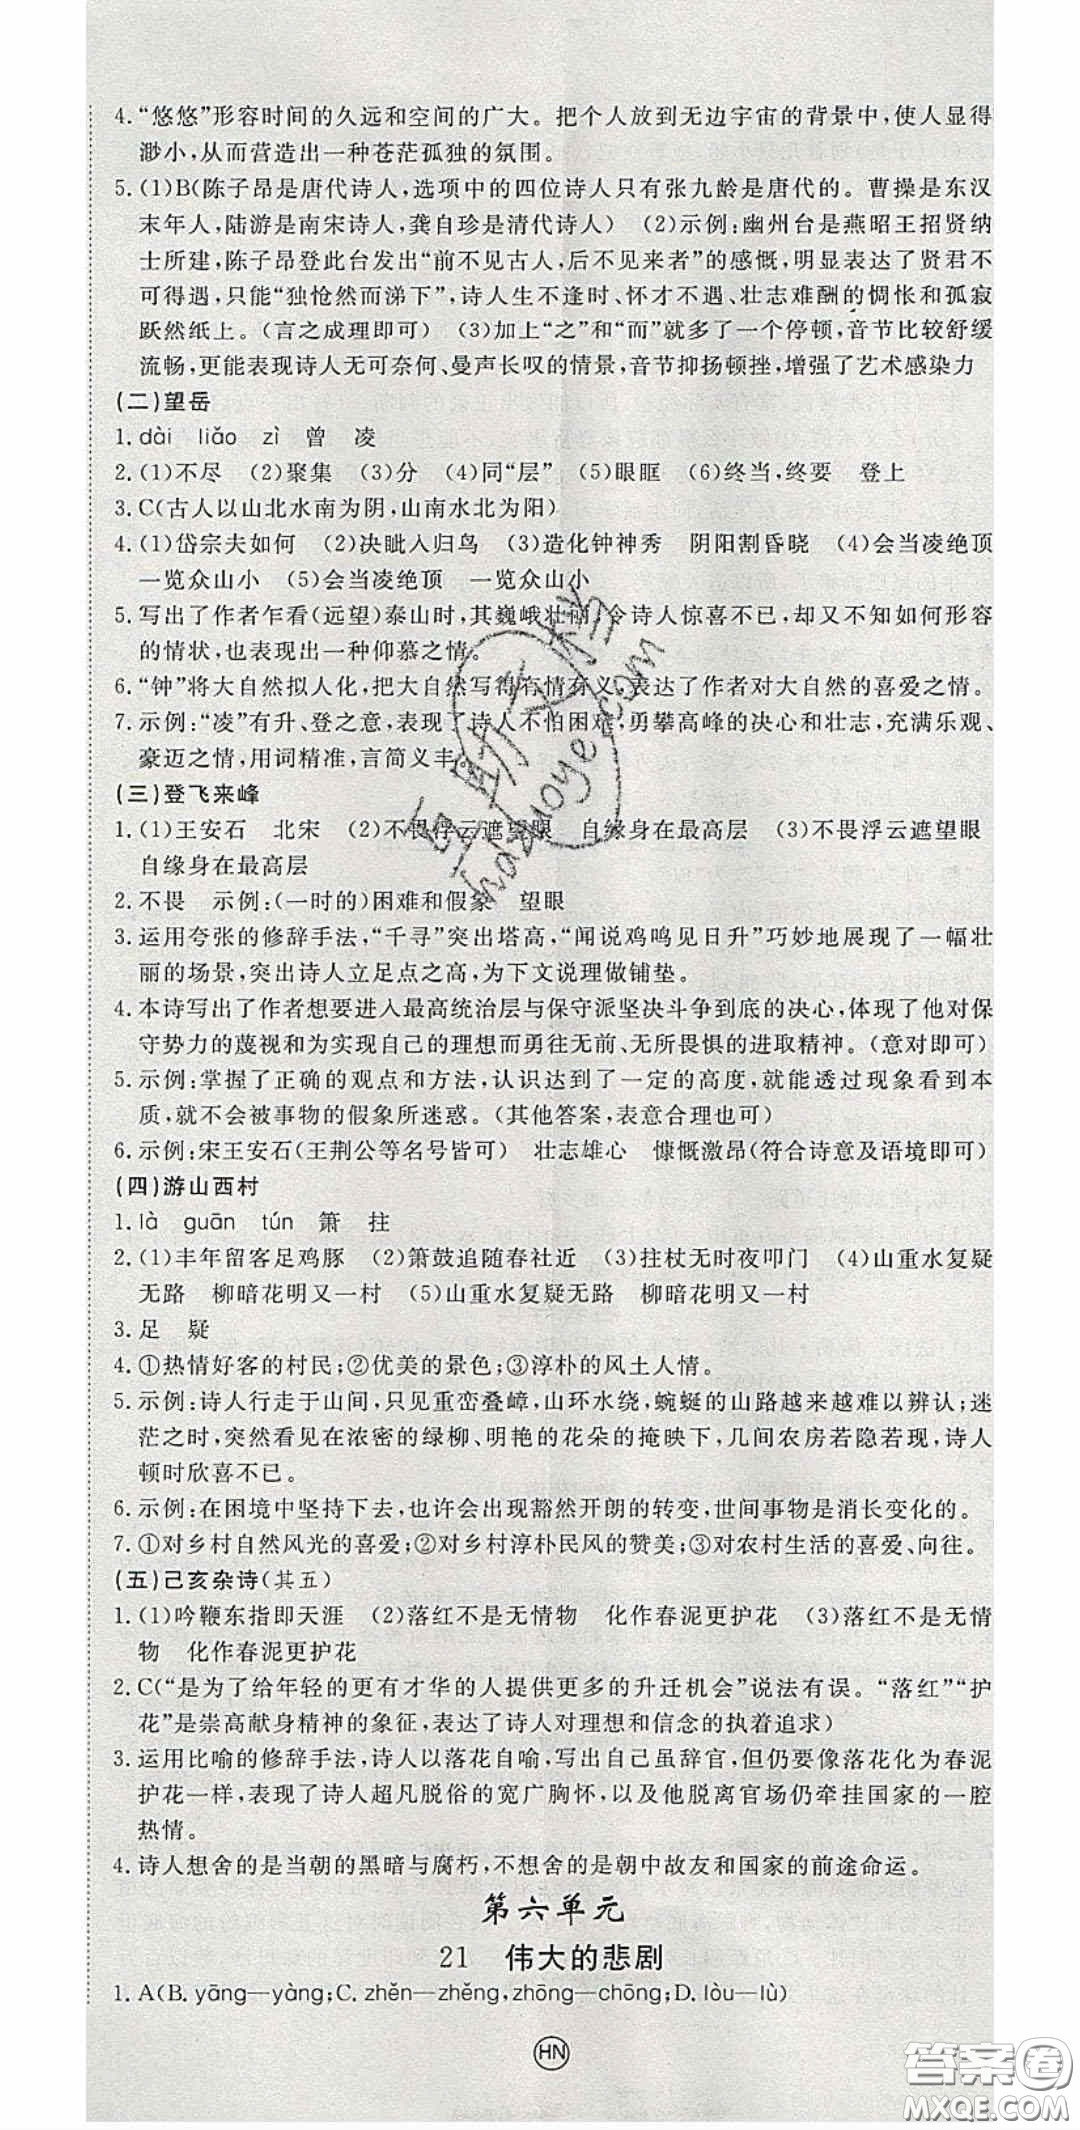 4. “悠悠”形容时间的久远和空间的广大。把个人放到无边宇宙的背景中,使人显得
渺小,从而营造出一种苍茫孤独的氛围。
5. (1)B(陈子昂是唐代诗人,选项中的四位诗人只有张九龄是唐代的。曹操是东汉
末年人,陆游是南宋诗人,龚自珍是清代诗人) (2)示例:幽州台是燕昭王招贤纳
士所建,陈子昂登此台发出“前不见古人,后不见来者”的感慨,明显表达了贤君不
可得遇,只能“独怆然而涕下”,诗人生不逢时、怀才不遇、壮志难酬的惆怅和孤寂
跃然纸上。(言之成理即可) (3)加上“之”和“而”就多了一个停顿,音节比较舒缓
流畅,更能表现诗人无可奈何、曼声长叹的情景,音节抑扬顿挫,增强了艺术感染力
(二)望岳
1. dài liǎo zì 曾 凌
2. (1)不尽 (2)聚集 (3)分 (4)同“层” (5)眼眶 (6)终当,终要 登上
3. C(古人以山北水南为阴,山南水北为阳)
4. (1)岱宗夫如何 (2)决眦入归鸟 (3)造化钟神秀 阴阳割昏晓 (4)会当凌绝顶
一览众山小 (5)会当凌绝顶 一览众山小
5. 写出了作者乍看(远望)泰山时,其巍峨壮丽,令诗人惊喜不已,却又不知如何形容
的情状,也表现出一种仰慕之情。
6. “钟”将大自然拟人化,把大自然写得有情有义,表达了作者对大自然的喜爱之情。
7. 示例:“凌”有升、登之意,表现了诗人不怕困难,勇攀高峰的决心和壮志,充满乐观、
豪迈之情,用词精准,言简义丰。
(三)登飞来峰
1. (1)王安石 北宋 (2)不畏浮云遮望眼 自缘身在最高层 (3)不畏浮云遮望眼
自缘身在最高层
2. 不畏 示例:(一时的)困难和假象 望眼
3. 运用夸张的修辞手法,“千寻”突出塔高,“闻说鸡鸣见日升”巧妙地展现了一幅壮
丽的场景,突出诗人立足点之高,为下文说理做铺垫。
4. 本诗写出了作者想要进入最高统治层与保守派坚决斗争到底的决心,体现了他对保
守势力的蔑视和为实现自己的理想而勇往无前、无所畏惧的进取精神。(意对即可)
5. 示例:掌握了正确的观点和方法,认识达到了一定的高度,就能透过现象看到本
质,就不会被事物的假象所迷惑。(其他答案,表意合理也可)
6. 示例:宋王安石(王荆公等名号皆可) 壮志雄心 慷慨激昂(符合诗意及语境即可)
(四)游山西村
1. là guān tún 箫 拄
2. (1)丰年留客足鸡豚 (2)箫鼓追随春社近 (3)拄杖无时夜叩门 (4)山重水复疑
无路 柳暗花明又一村 (5)山重水复疑无路 柳暗花明又一村
3. 足 疑
4. ①热情好客的村民;②优美的景色;③淳朴的风土人情。
5. 示例:诗人行走于山间,只见重峦叠嶂,山环水绕,蜿蜒的山路越来越难以辨认;迷
茫之时,突然看见在浓密的绿柳、明艳的花朵的掩映下,几间农房若隐若现,诗人
顿时欣喜不已。
6. 示例:在困境中坚持下去,也许会出现豁然开朗的转变,世间事物是消长变化的。
7. ①对乡村自然风光的喜爱;②对乡村淳朴民风的赞美;③对农村生活的喜爱、向往。
(五)己亥杂诗(其五)
1. (1)吟鞭东指即天涯 (2)落红不是无情物 化作春泥更护花 (3)落红不是无情
物 化作春泥更护花
2. C(“是为了给年轻的更有才华的人提供更多的升迁机会”说法有误。“落红”“护
花”是崇高献身精神的象征,表达了诗人对理想和信念的执着追求)
3. 运用比喻的修辞手法,诗人以落花自喻,写出自己虽辞官,但仍要像落花化为春泥
护花一样,表现了诗人超凡脱俗的宽广胸怀,以及他脱离官场仍牵挂国家的一腔
热情。
4. 诗人想舍的是当朝的黑暗与腐朽,不想舍的是朝中故友和国家的前途命运。
第六单元
21 伟大的悲剧
1. A(B. yāng—yàng;C. zhěn—zhěng,zhōng—chōng;D. lòu—lù)
HN
答案圈
MXQE.COM